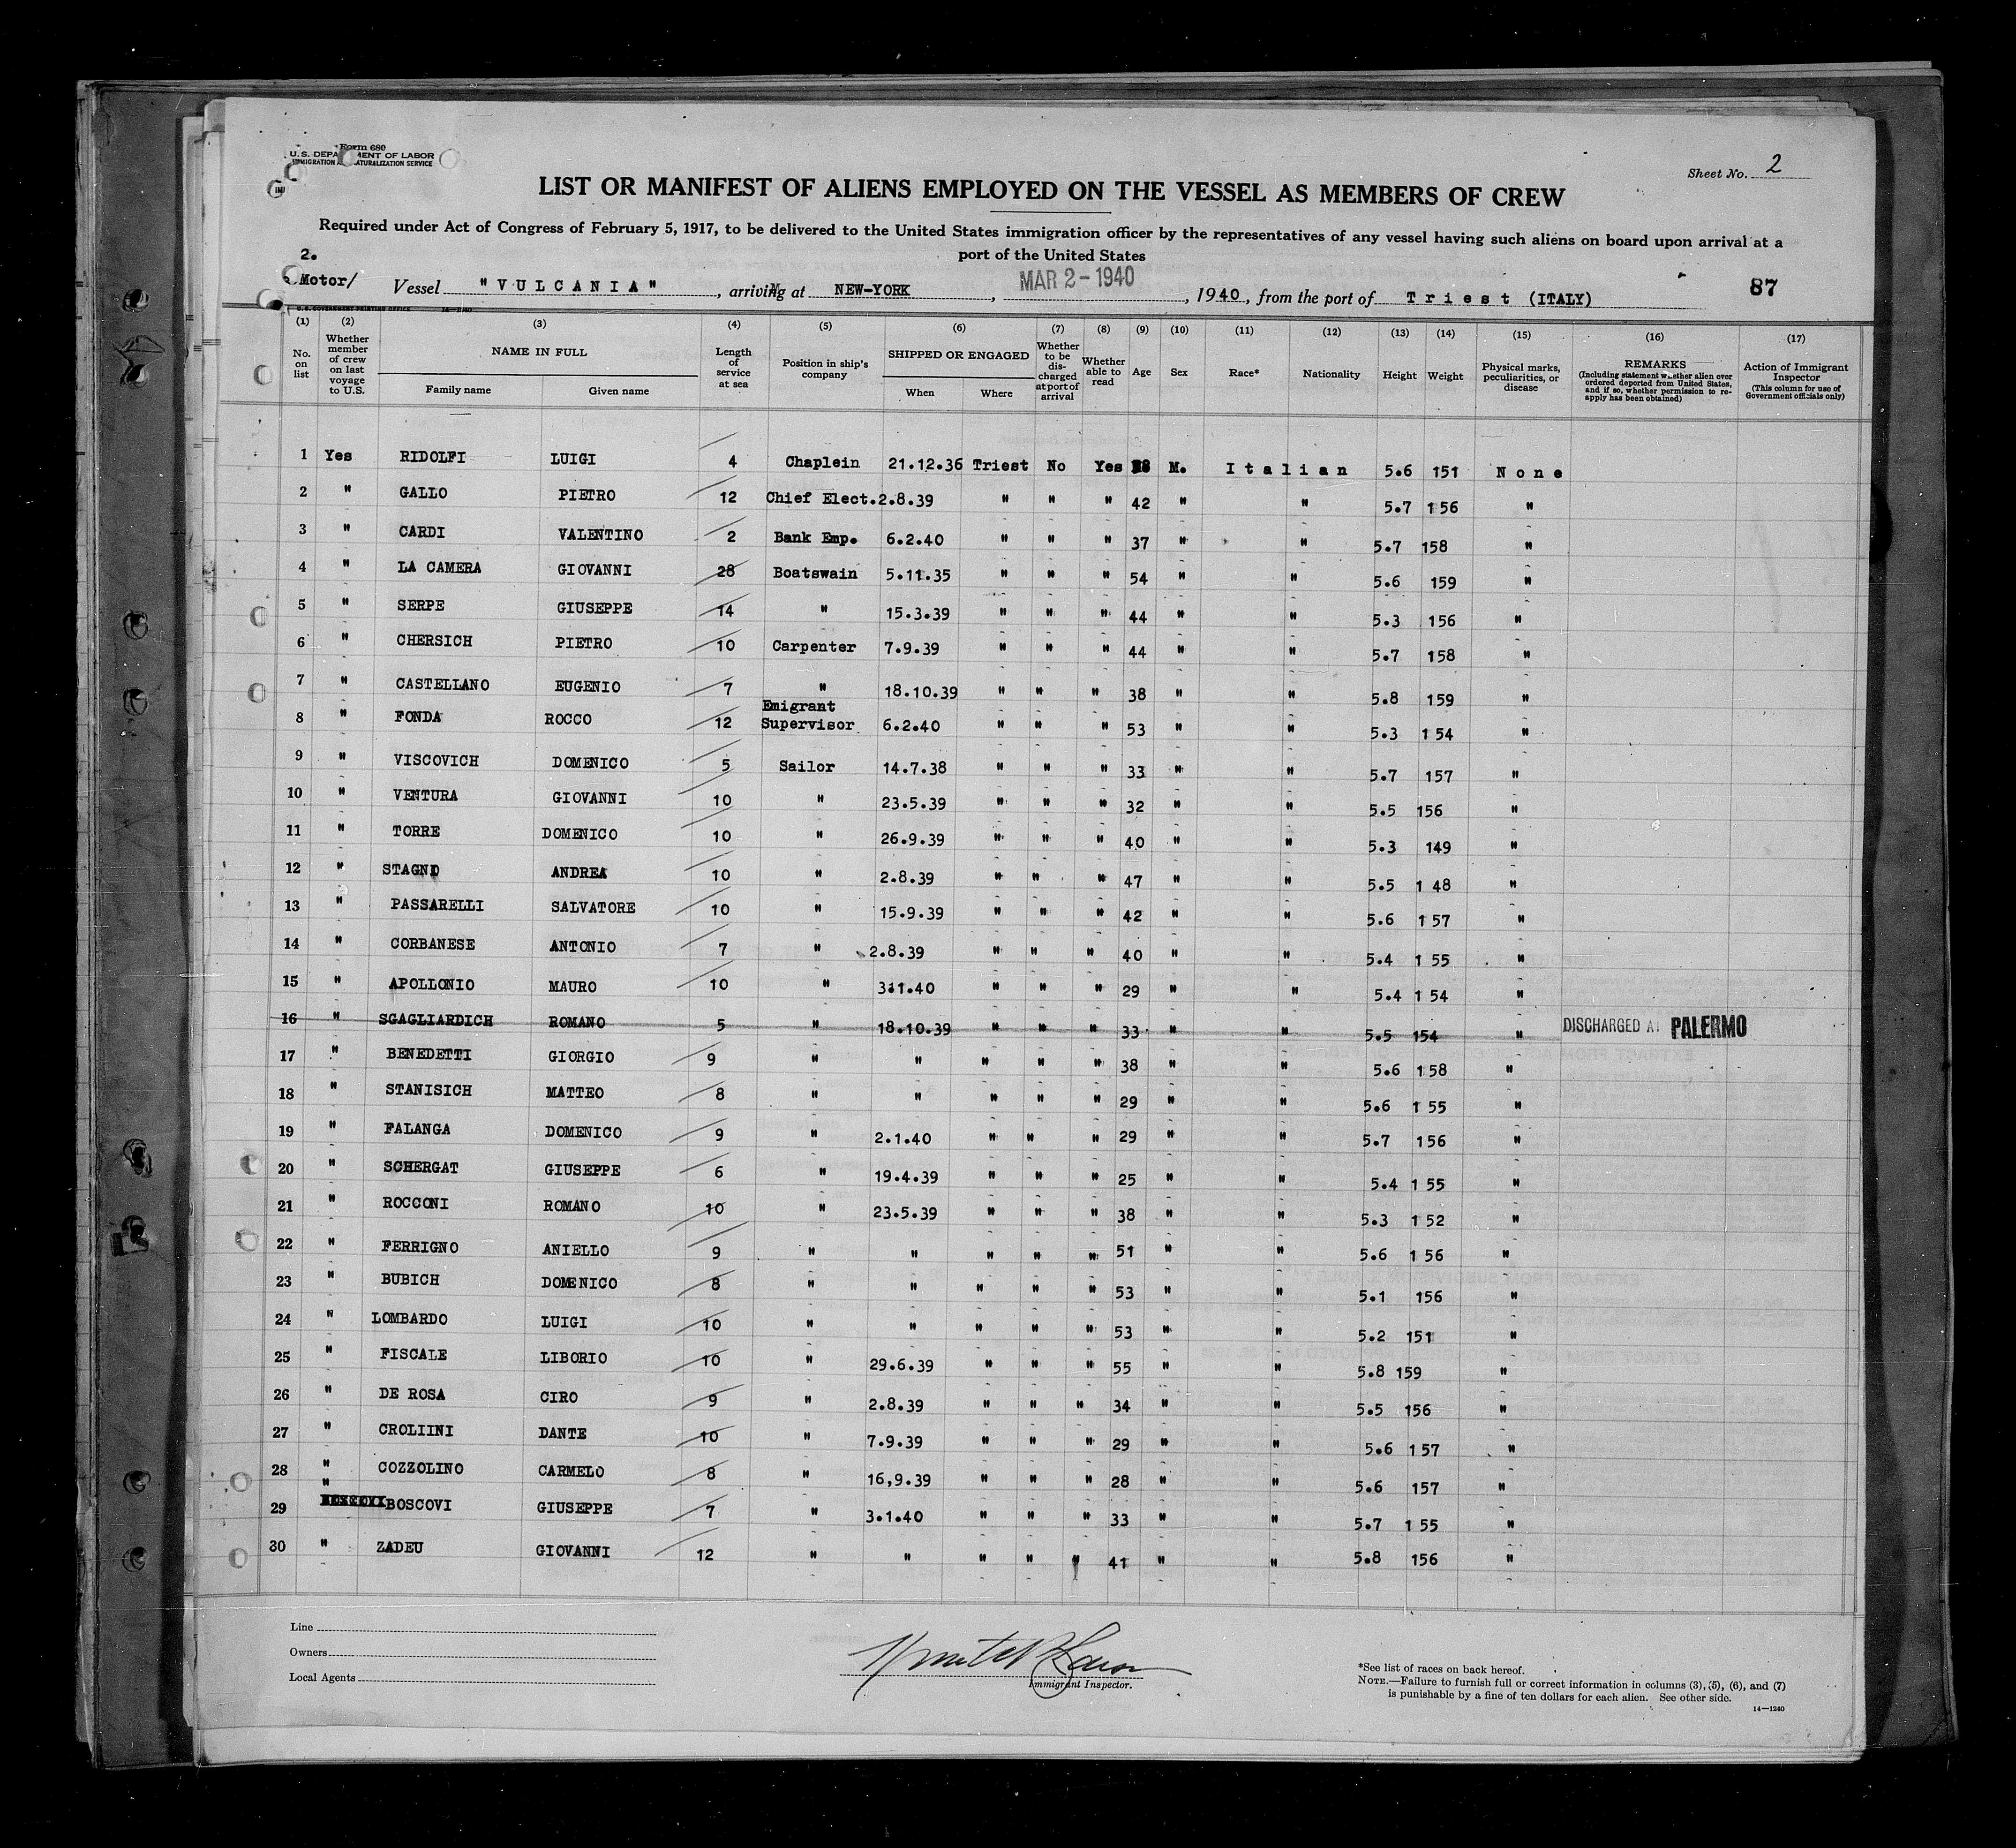 Form 680
U.S. DEPARTMENT OF LABOR
IMMIGRATION AND NATURALIZATION SERVICE
Sheet No. 2
LIST OR MANIFEST OF ALIENS EMPLOYED ON THE VESSEL AS MEMBERS OF CREW
Required under Act of Congress of February 5, 1917, to be delivered to the United States immigration officer by the representatives of any vessel having such aliens on board upon arrival at a
port of the United States
2.
Motor/ Vessel "VULCANIA", arriving at NEW-YORK, MAR 2-1940, 1940, from the port of Triest (ITALY) 87
U.S. GOVERNMENT PRINTING OFFICE
(1) (2) (3) (4) (5) (6) (7) (8) (9) (10) (11) (12) (13) (14) (15) (16) (17)
No. on list
Whether member of crew on last voyage to U.S.
NAME IN FULL
Family name Given name
Length of service at sea
Position in ship's company
SHIPPED OR ENGAGED
When Where
Whether to be discharged at port of arrival
Whether able to read
Age
Sex
Race*
Nationality
Height
Weight
Physical marks, peculiarities, or disease
REMARKS
(Including statement whether alien ever ordered deported from United States, and if so, whether permission to re-apply has been obtained)
Action of Immigrant Inspector
(This column for use of Government officials only)
1 Yes RIDOLFI LUIGI 4 Chaplein 21.12.36 Triest No Yes M. Italian 5.6 151 None
2 " GALLO PIETRO 12 Chief Elect. 2.8.39 " " " 42 " " 5.7 156 "
3 " CARDI VALENTINO 2 Bank Emp. 6.2.40 " " " 37 " " 5.7 158 "
4 " LA CAMERA GIOVANNI 28 Boatswain 5.11.35 " " " 54 " " 5.6 159 "
5 " SERPE GIUSEPPE 14 " 15.3.39 " " " 44 " " 5.3 156 "
6 " CHERSICH PIETRO 10 Carpenter 7.9.39 " " " 44 " " 5.7 158 "
7 " CASTELLANO EUGENIO 7 " 18.10.39 " " " 38 " " 5.8 159 "
8 " FONDA ROCCO 12 Emigrant Supervisor 6.2.40 " " " 53 " " 5.3 154 "
9 " VISCOVICH DOMENICO 5 Sailor 14.7.38 " " " 33 " " 5.7 157 "
10 " VENTURA GIOVANNI 10 " 23.5.39 " " " 32 " " 5.5 156 "
11 " TORRE DOMENICO 10 " 26.9.39 " " " 40 " " 5.3 149 "
12 " STAGNO ANDREA 10 " 2.8.39 " " " 47 " " 5.5 148 "
13 " PASSARELLI SALVATORE 10 " 15.9.39 " " " 42 " " 5.6 157 "
14 " CORBANESE ANTONIO 7 " 2.8.39 " " " 40 " " 5.4 155 "
15 " APOLLONIO MAURO 10 " 3.1.40 " " " 29 " " 5.4 154 "
16 " SGAGLIARDICH ROMANO 5 " 18.10.39 " " " 33 " " 5.5 154 " DISCHARGED AT PALERMO
17 " BENEDETTI GIORGIO 9 " " " " " 38 " " 5.6 158 "
18 " STANISICH MATTEO 8 " " " " " 29 " " 5.6 155 "
19 " FALANGA DOMENICO 9 " 2.1.40 " " " 29 " " 5.7 156 "
20 " SCHERGAT GIUSEPPE 6 " 19.4.39 " " " 25 " " 5.4 155 "
21 " ROCCONI ROMANO 10 " 23.5.39 " " " 38 " " 5.3 152 "
22 " FERRIGNO ANIELLO 9 " " " " " 51 " " 5.6 156 "
23 " BUBICH DOMENICO 8 " " " " " 53 " " 5.1 156 "
24 " LOMBARDO LUIGI 10 " " " " " 53 " " 5.2 151 "
25 " FISCALE LIBORIO 10 " 29.6.39 " " " 55 " " 5.8 159 "
26 " DE ROSA CIRO 9 " 2.8.39 " " " 34 " " 5.5 156 "
27 " CROLIINI DANTE 10 " 7.9.39 " " " 29 " " 5.6 157 "
28 " COZZOLINO CARMELO 8 " 16,9.39 " " " 28 " " 5.6 157 "
29 " BOSCOVI GIUSEPPE 7 " 3.1.40 " " " 33 " " 5.7 155 "
30 " ZADEU GIOVANNI 12 " " " " " 41 " " 5.8 156 "
Line
Owners
Local Agents
Immigrant Inspector.
*See list of races on back hereof.
NOTE.—Failure to furnish full or correct information in columns (3), (5), (6), and (7)
is punishable by a fine of ten dollars for each alien. See other side.
14—1240